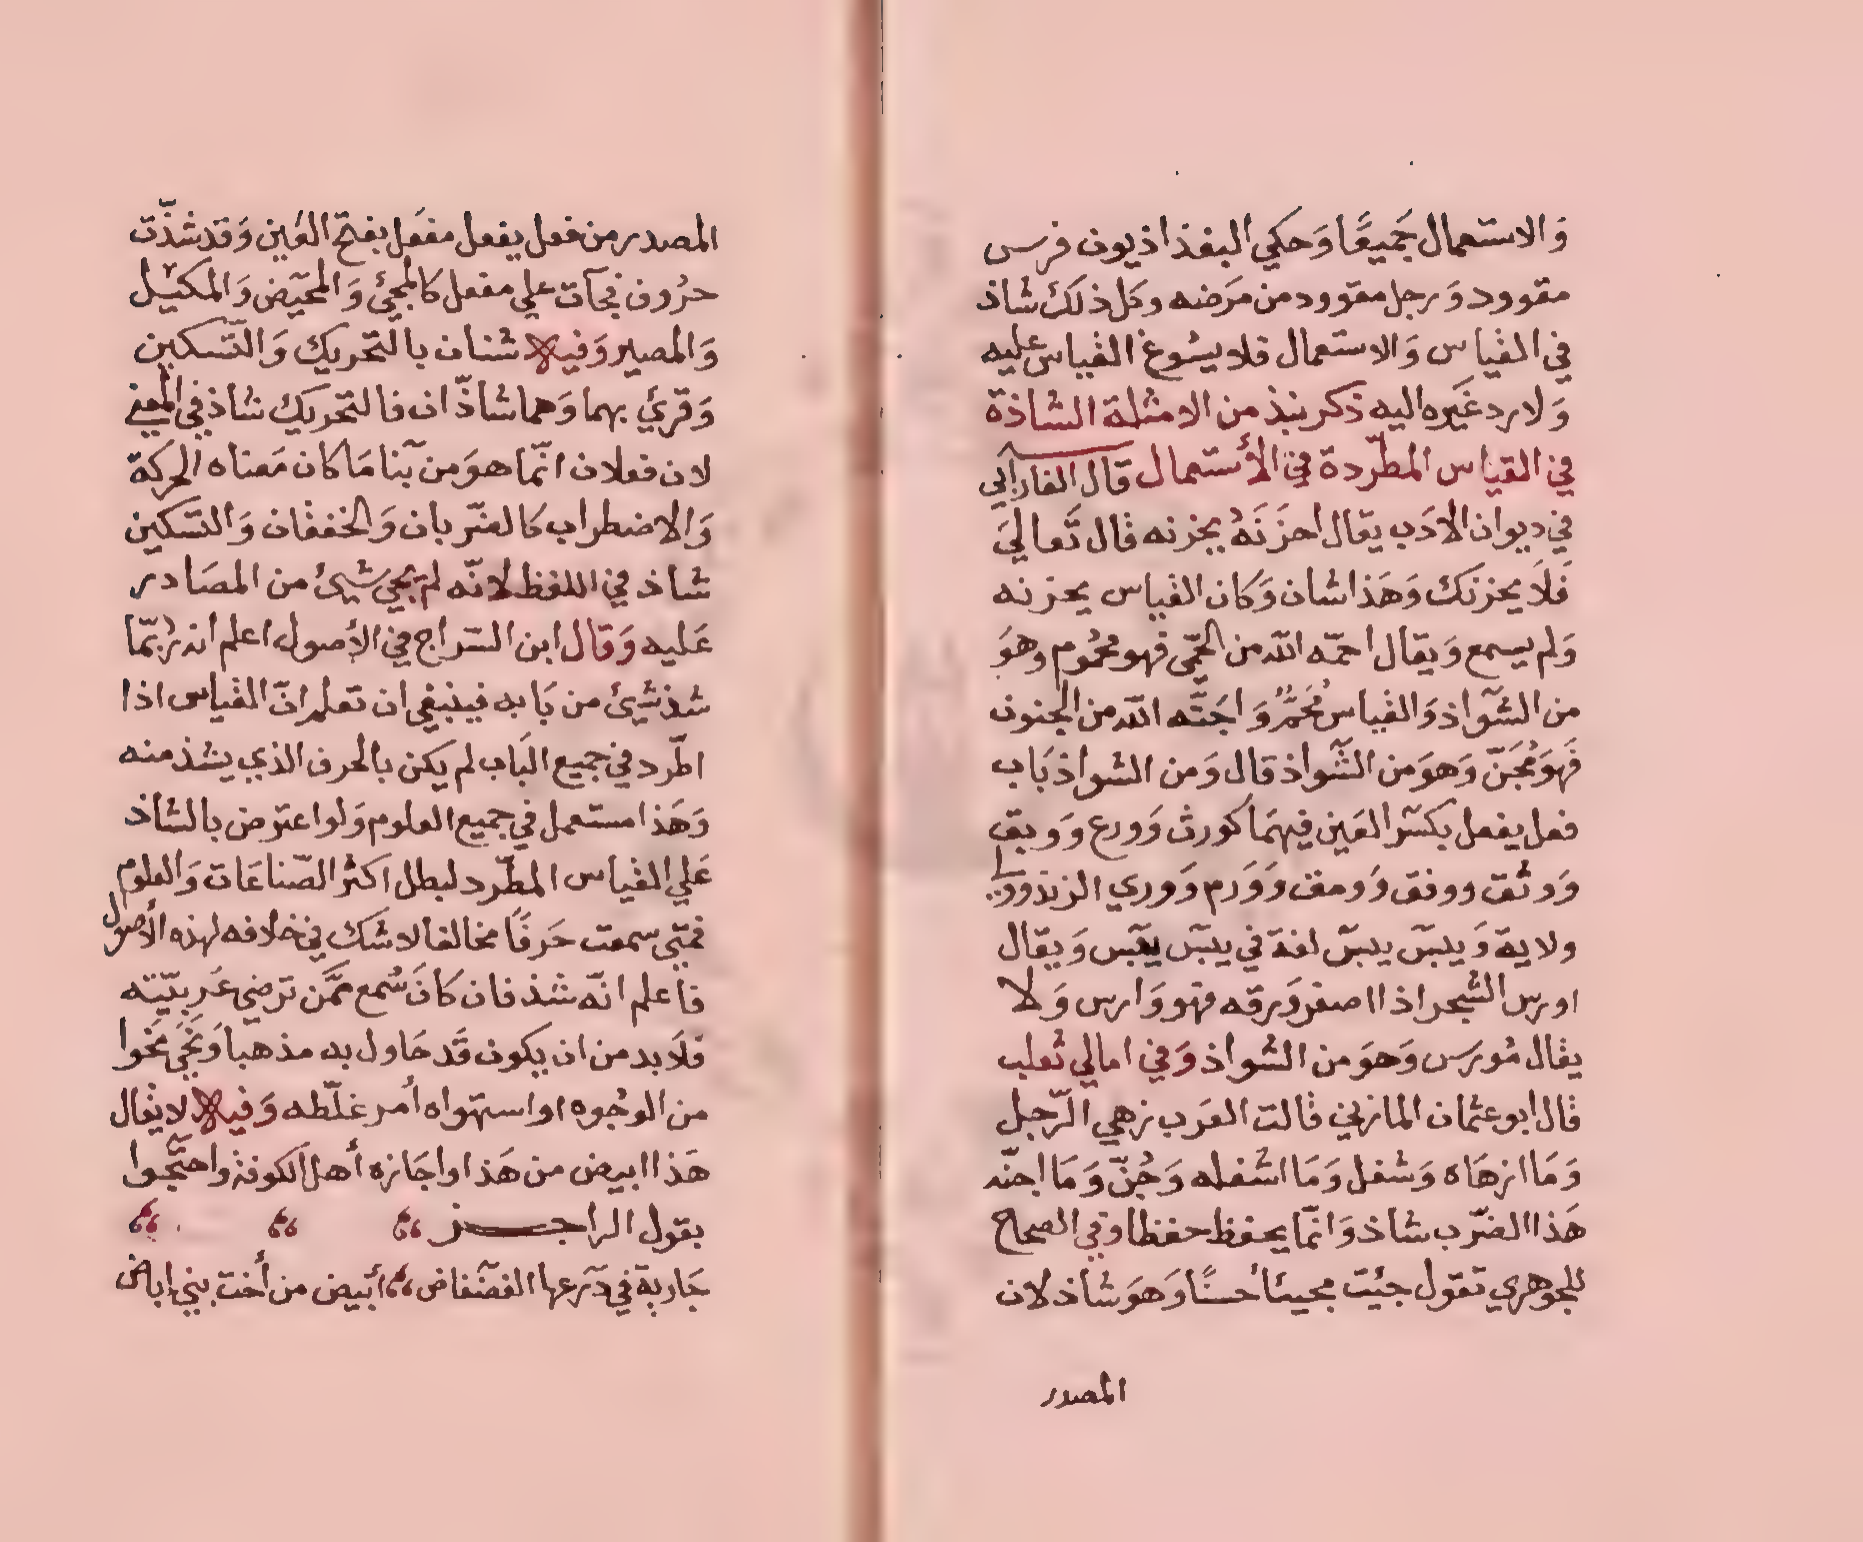 وَالاستعمال جَميعًا وَحكي البغذاذيون فرس
مقوود وَرجل مقوود من مَرَضه وكل ذلك شاذ
في القياس وَالاستعمال فلا يسُوغ القياس عليه
وَلا رد غَيره اليه ذكر نبذ من الامثلة الشاذة
في القياس المطّردة في الأستعمال قال الفارابي
في ديوان الادَب يقال احزَنَهُ يحزنه قال تَعالي
فَلاَ يحزنك وَهَذا شان وَكان القياس يحزنه
وَلم يسمع وَيقال احمّه الله من الحمّي فهو محمُوم وهوَ
من الشّواذ وَالقياس مُحَمٌّ وَاجَنّه الله من الجنون
فَهوَ مُجَنّ وَهوَ من الشّواذ قال وَمن الشواذ بَاب
فعل يفعل بكسر العَين فيهمَا كورث وَورع وَوبق
وَوثق ووفق وَومق وَوَرم وَوري الزند وولي
ولاية وَيبسّ يبسّ لغة في يبسّ يَيْبس وَيقال
اورس الشجر اذا اصفر وَرقه فهو وَارس وَلا
يقال مُورَس وَهوَ من الشواذ وَفي امالي ثعلب
قال ابو عثمان المازني قالت العَرب زهي الرّجل
وَمَا ازهَاه وَشغل وَمَا اشغله وَجُنّ وَمَا اجنّه
هَذا الضّرب شاذ وَانّما يحفظ حفظا وفي الصحاح
للجوهري تقول جئت مجيئا حُسنًا وَهوَ شاذ لان
المصدر
المصدر من فعل يفعل مفعَل بفتح العَين وَقد شذّت
حرُوف فجَآت علي مفعل كالمجئ وَالمحيَض وَالمكيل
وَالمصير وَفيه شنان بالتحريك وَالتّسكين
وَقرئ بهما وَهما شاذّان فالتحريك شاذ في المعني
لان فعلان انّما هوَ من بنا مَا كان مَعناه الحركة
وَالاضطراب كالضّربان وَالخفقان وَالتسكين
شاذ في اللفظ لانّه لم يَجي شيئ من المصَادر
عَليه وَقال ابن السّراج في الأصول اعلم انه رُبّما
شذ شيئ من بَابه فينبغي ان تعلم انّ القياس اذا
اطّرد في جميع البَاب لم يكن بالحرف الذي يشذ منه
وَهَذا مستعمل في جميع العلوم وَلو اعترض بالشاذ
عَلي القياس المطّرد لبطل اكثر الصّناعَات وَالعلوم
فمتى سمعت حَرفًا مخالفا لا شك في خلافه لهذه الأصول
فاعلم انّه شذ فان كانَ سُمع ممَّن ترضي عَربيّته
فلاَ بد من ان يكون قَد حَاول به مذهبا وَنَحَي نَحوا
من الوجُوه او استهواه أمر غلّطه وَفيه لا يقال
هَذا ابيض من هَذا واجَازه أهل الكوفة واحتّجوا
بقول الراجــــز
جَارية في دَرعها الفضفاض أبيض من أخت بني إباض